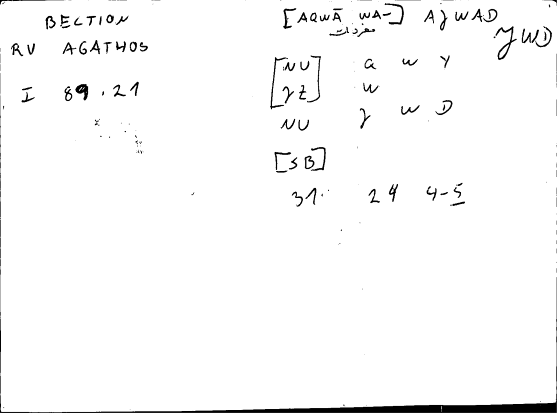 BECTION
RV AGATHOS
I 89.21
[AQWĀ WA-] AJWAD
مفردات
JWD
[NU] a w Y
[JZ] w
NU J W D
[SB]
31. 24 4-5